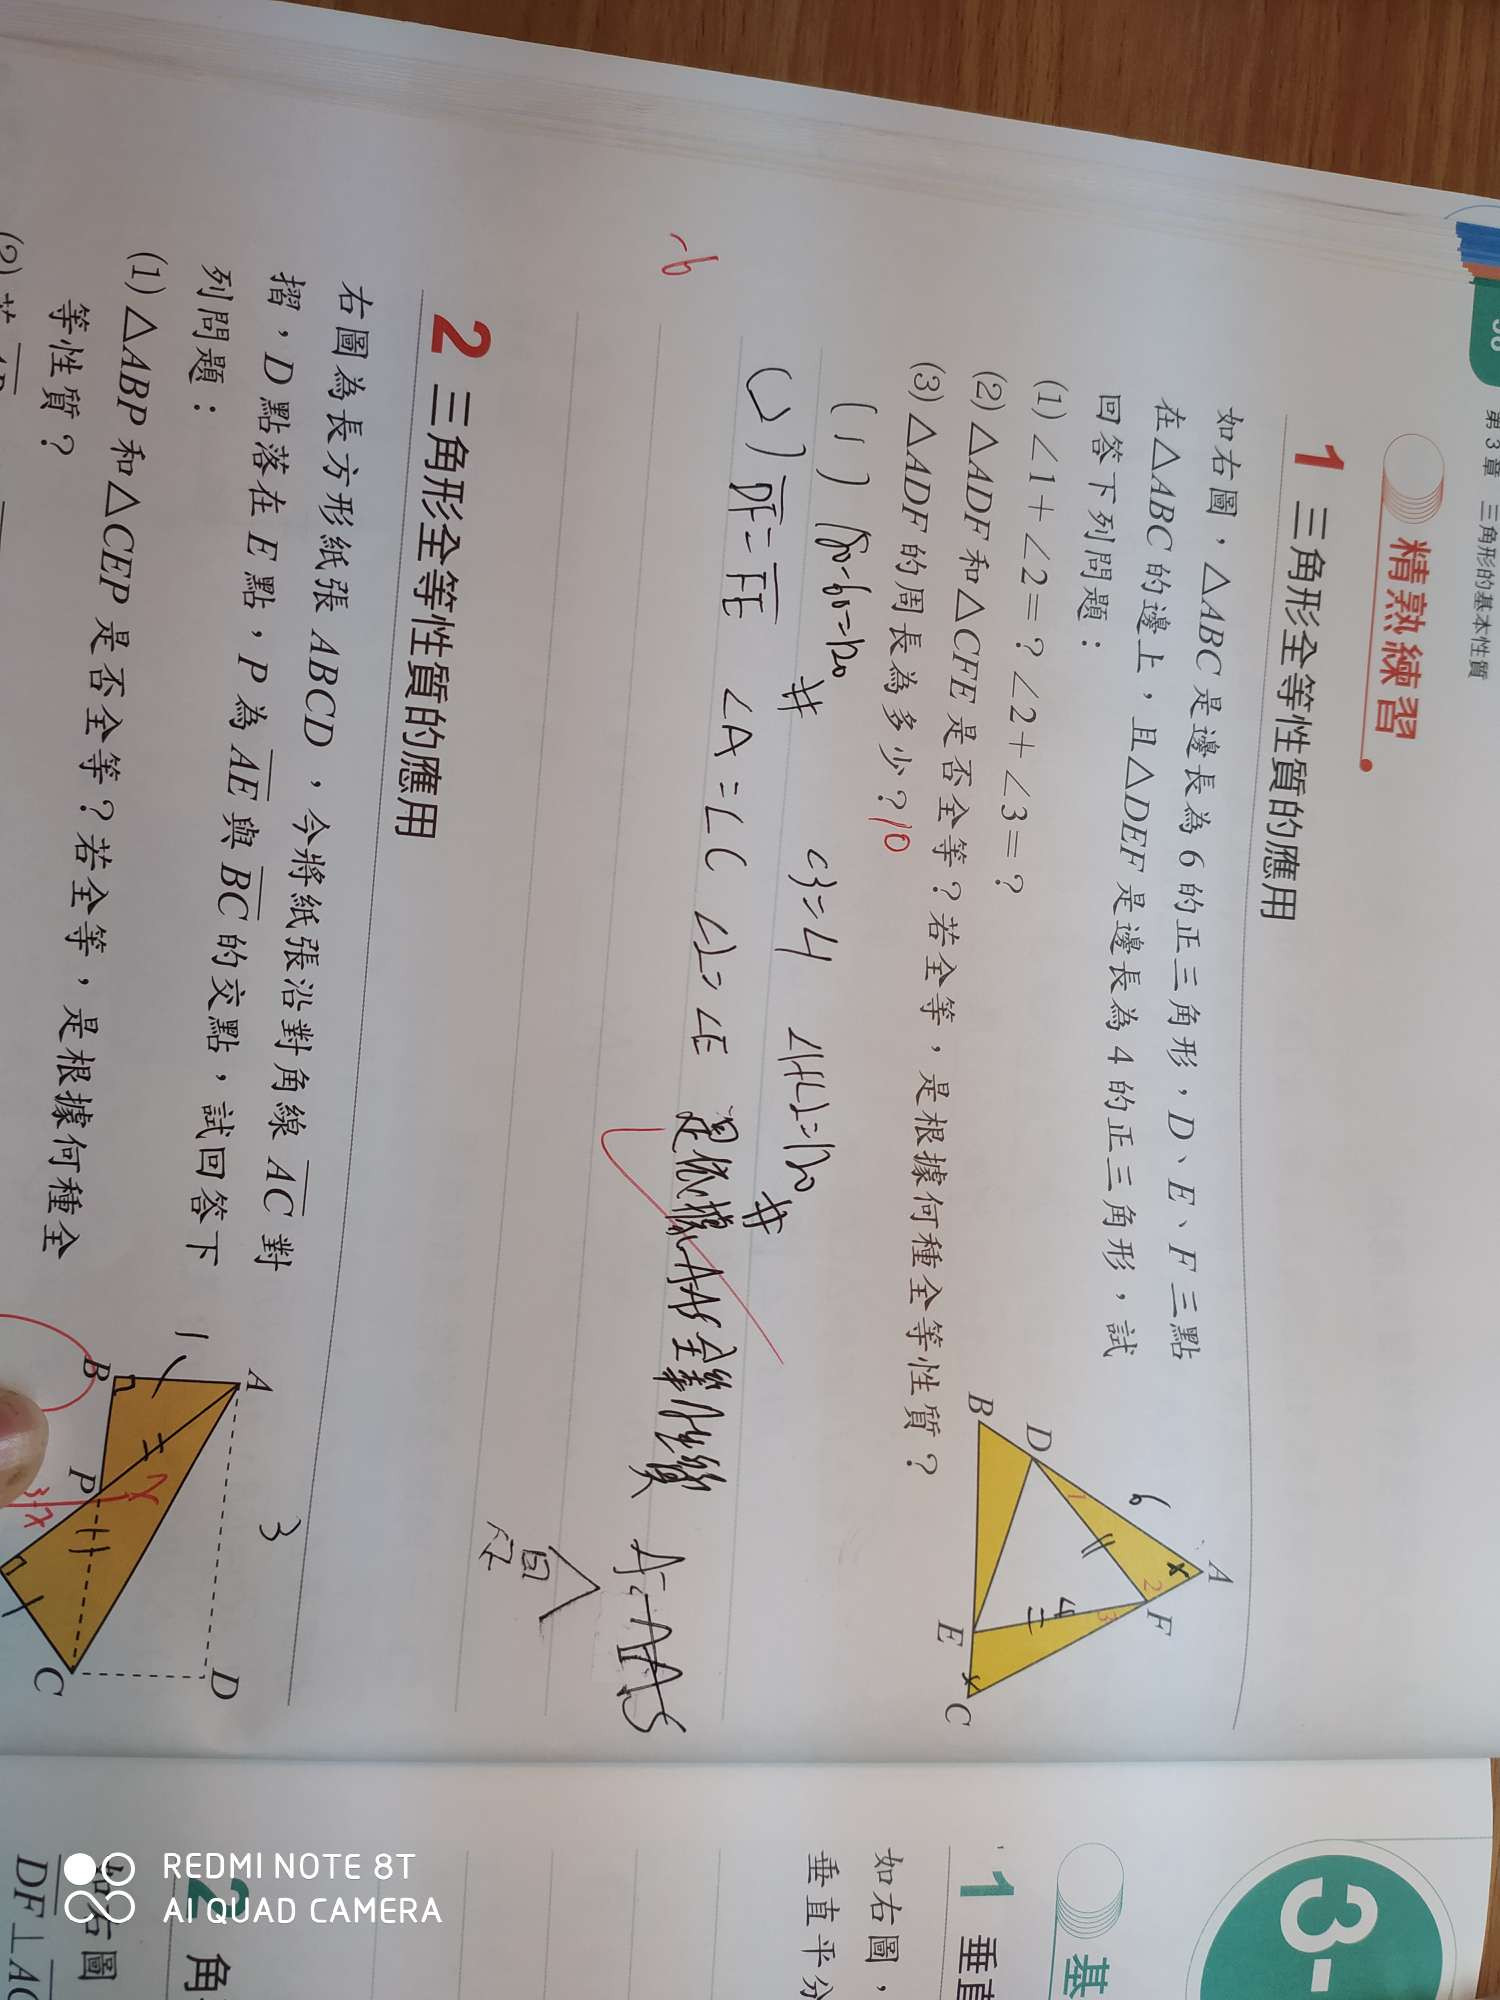 第 3 章 三角形的基本性質
精熟練習
1 三角形全等性質的應用
如右圖，△ABC 是邊長為 6 的正三角形，D、E、F 三點
在△ABC 的邊上，且△DEF 是邊長為 4 的正三角形，試
回答下列問題：
(1) ∠1＋∠2＝？∠2＋∠3＝？
(2) △ADF 和△CFE 是否全等？若全等，是根據何種全等性質？
(3) △ADF 的周長為多少？10
A
6
2
F
1
3
D
4
B
E
C
(1) 180-60=120 # ∠3=∠1 ∠1+∠2=120 #
(2) DF=FE ∠A=∠C ∠2=∠E 是依據AAS全等性質 A: AAS
-6
2 三角形全等性質的應用
右圖為長方形紙張 ABCD，今將紙張沿對角線 AC 對
摺，D 點落在 E 點，P 為 AE 與 BC 的交點，試回答下
列問題：
(1) △ABP 和△CEP 是否全等？若全等，是根據何種全
等性質？
(2) 若
A
3
D
1
B
P
3-x
C
3-
基
1 垂直
如右圖，
垂直平分
2 角
如右圖
DF⊥AC
REDMI NOTE 8T
AI QUAD CAMERA